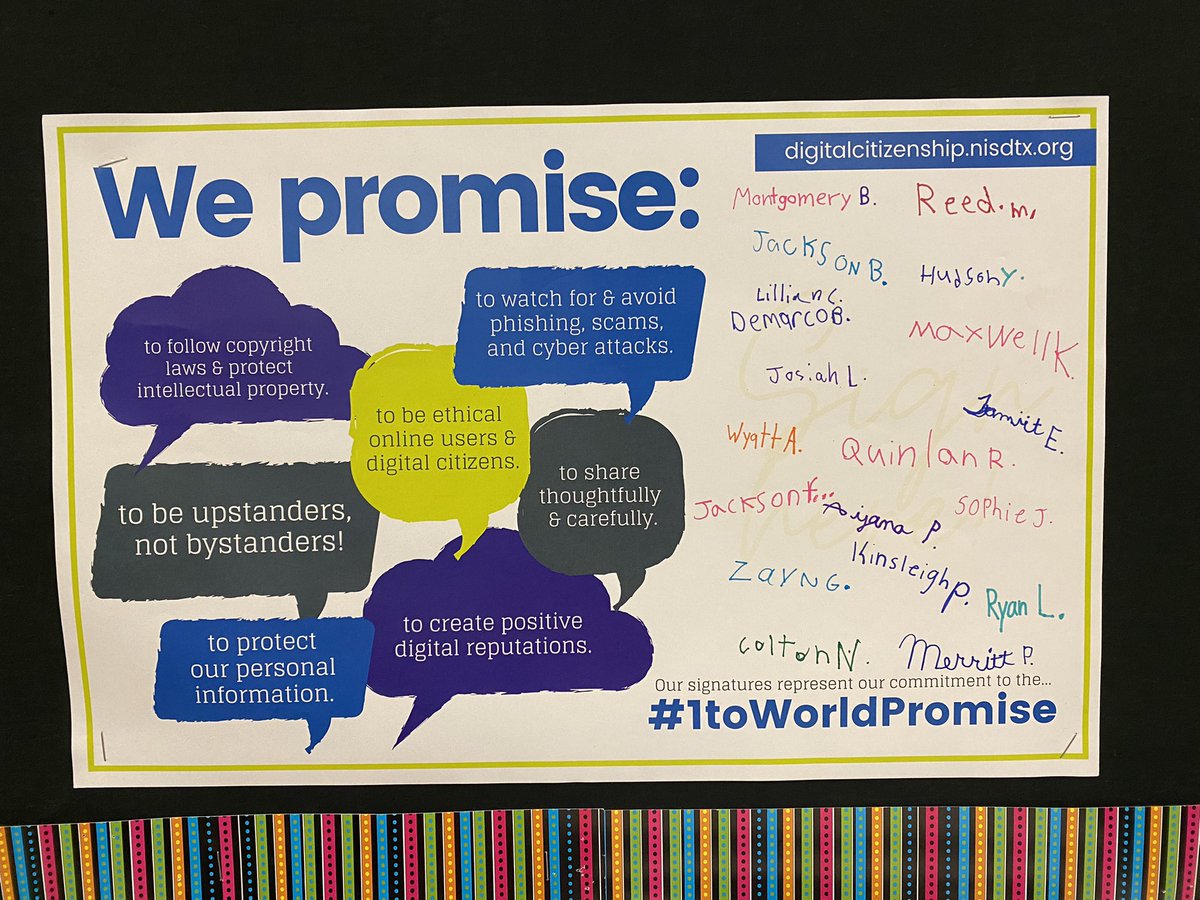 We promise:
digitalcitizenship.nisdtx.org
to follow copyright
laws & protect
intellectual property.
to watch for & avoid
phishing, scams,
and cyber attacks.
to be ethical
online users &
digital citizens.
to share
thoughtfully
& carefully.
to be upstanders,
not bystanders!
to create positive
digital reputations.
to protect
our personal
information.
Montgomery B.
Reed.m.
Jackson B.
Hudson Y.
Lillian C.
Demarco B.
Maxwell K.
Josiah L.
E.
Wyatt A.
Quinlan R.
Jackson t...
Aiyana P.
Sophie J.
Zayn G.
Kinsleigh P.
Ryan L.
Colton N.
Merritt P.
Sign
here!
Our signatures represent our commitment to the...
#1toWorldPromise